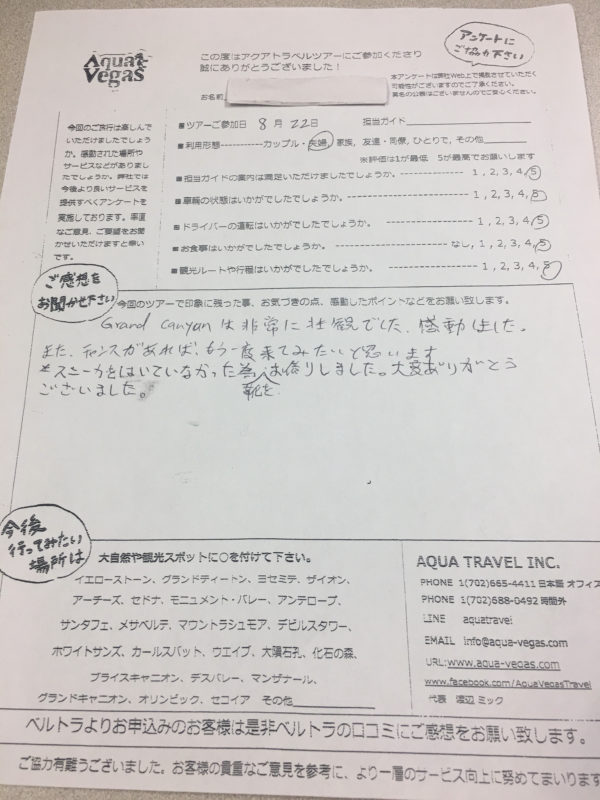 Aqua Vegas
この度はアクアトラベルツアーにご参加くださり
誠にありがとうございました！
アンケートに
ご協力下さい
本アンケートは弊社Web上で掲載させていただく
可能性がございますのでご了承ください。
実名の公表はございませんのでご安心ください。
お名前
■ツアーご参加日 8月 22日 担当ガイド
■利用形態-----------カップル・夫婦, 家族, 友達・同僚, ひとりで, その他
※評価は1が最低 5が最高でお願いします
■担当ガイドの案内は満足いただけましたでしょうか。 ---------------- 1, 2, 3, 4, 5
■車輌の状態はいかがでしたでしょうか。 ---------------- 1, 2, 3, 4, 5
■ドライバーの運転はいかがでしたでしょうか。 ---------------- 1, 2, 3, 4, 5
■お食事はいかがでしたでしょうか。 ---------------- なし, 1, 2, 3, 4, 5
■観光ルートや行程はいかがでしたでしょうか。 ---------------- 1, 2, 3, 4, 5
今回のご旅行は楽しんで
いただけましたでしょう
か。感動された場所や
サービスなどがありまし
たでしょうか。弊社では
今後より良いサービスを
提供すべくアンケートを
実施しております。率直
なご意見、ご要望をお聞
かせいただけますと幸い
です。
ご感想を
お聞かせ下さい
今回のツアーで印象に残った事、お気づきの点、感動したポイントなどをお願い致します。
Grand Canyan は非常に壮観でした、感動しました。
また、チャンスがあれば、もう一度来てみたいと思います
*スニーカをはいていなかった為、靴をお借りしました。大変ありがとう
ございました。
今後
行ってみたい
場所は
大自然や観光スポットに○を付けて下さい。
イエローストーン、グランドティートン、ヨセミテ、ザイオン、
アーチーズ、セドナ、モニュメント・バレー、アンテロープ、
サンタフェ、メサベルテ、マウントラシュモア、デビルスタワー、
ホワイトサンズ、カールスバット、ウエイブ、大隕石孔、化石の森、
ブライスキャニオン、デスバレー、マンザナール、
グランドキャニオン、オリンピック、セコイア その他
AQUA TRAVEL INC.
PHONE 1(702)665-4411 日本語 オフィス
PHONE 1(702)688-0492 時間外
LINE aquatravel
EMAIL info@aqua-vegas.com
URL:www.aqua-vegas.com
www.facebook.com/AquaVegasTravel
代表 渡辺 ミック
ベルトラよりお申込みのお客様は是非ベルトラの口コミにご感想をお願い致します。
ご協力有難うございました。お客様の貴重なご意見を参考に、より一層のサービス向上に努めてまいります